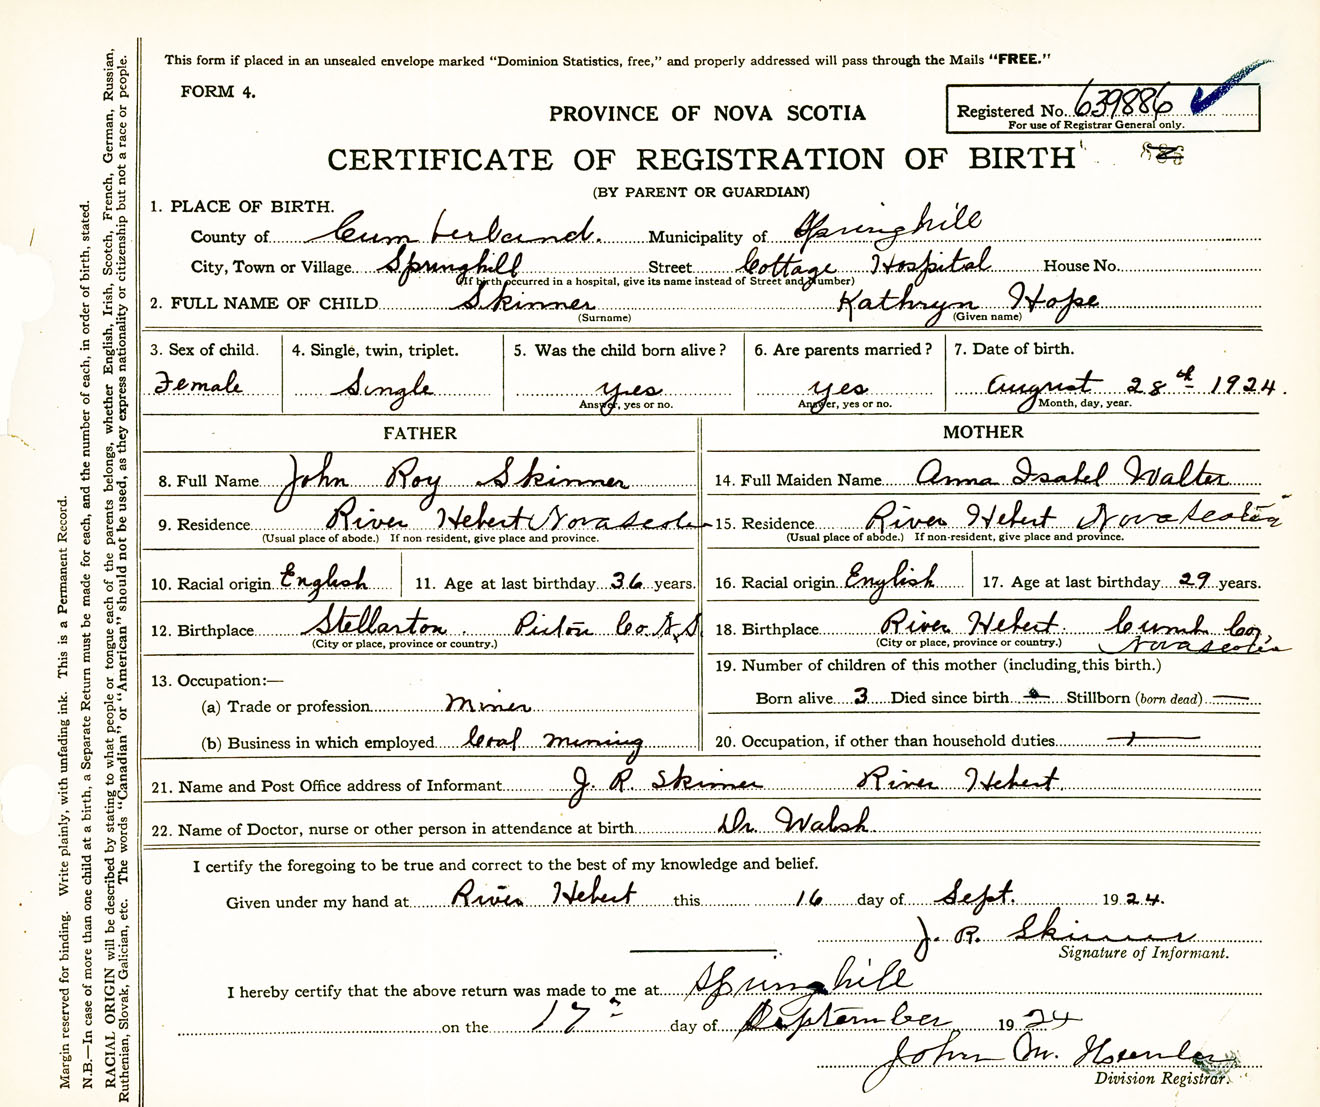 This form if placed in an unsealed envelope marked "Dominion Statistics, free," and properly addressed will pass through the Mails "FREE."
FORM 4.
PROVINCE OF NOVA SCOTIA
Registered No. 639886
For use of Registrar General only.
CERTIFICATE OF REGISTRATION OF BIRTH
(BY PARENT OR GUARDIAN)
1. PLACE OF BIRTH.
County of Cumberland. Municipality of Springhill
City, Town or Village Springhill Street Cottage Hospital House No.
(If birth occurred in a hospital, give its name instead of Street and Number)
2. FULL NAME OF CHILD Skinner Kathryn Hope
(Surname) (Given name)
3. Sex of child. 4. Single, twin, triplet. 5. Was the child born alive? 6. Are parents married? 7. Date of birth.
Female Single yes yes August 28th 1924.
Answer, yes or no. Answer, yes or no. Month, day, year.
FATHER MOTHER
8. Full Name John Roy Skinner 14. Full Maiden Name Anna Isabel Walter
9. Residence River Hebert Nova Scotia 15. Residence River Hebert Nova Scotia
(Usual place of abode.) If non resident, give place and province. (Usual place of abode.) If non-resident, give place and province.
10. Racial origin English 11. Age at last birthday 36 years. 16. Racial origin English 17. Age at last birthday 29 years.
12. Birthplace Stellarton. Pictou Co. N.S. 18. Birthplace River Hebert. Cumb Co,
(City or place, province or country.) (City or place, province or country.) Nova Scotia
13. Occupation:— 19. Number of children of this mother (including this birth.)
(a) Trade or profession Miner Born alive 3 Died since birth Stillborn (born dead)
(b) Business in which employed Coal mining 20. Occupation, if other than household duties
21. Name and Post Office address of Informant J. R. Skinner River Hebert.
22. Name of Doctor, nurse or other person in attendance at birth Dr. Walsh.
I certify the foregoing to be true and correct to the best of my knowledge and belief.
Given under my hand at River Hebert this 16 day of Sept. 1924.
J. R. Skinner
Signature of Informant.
I hereby certify that the above return was made to me at Springhill
on the 17 day of September 1924
John M.
Division Registrar.
Margin reserved for binding. Write plainly, with unfading ink. This is a Permanent Record.
N.B.—In case of more than one child at a birth, a Separate Return must be made for each, and the number of each, in order of birth, stated.
RACIAL ORIGIN will be described by stating to what people or tongue each of the parents belongs, whether English, Irish, Scotch, French, German, Russian,
Ruthenian, Slovak, Galician, etc. The words "Canadian" or "American" should not be used, as they express nationality or citizenship but not a race or people.